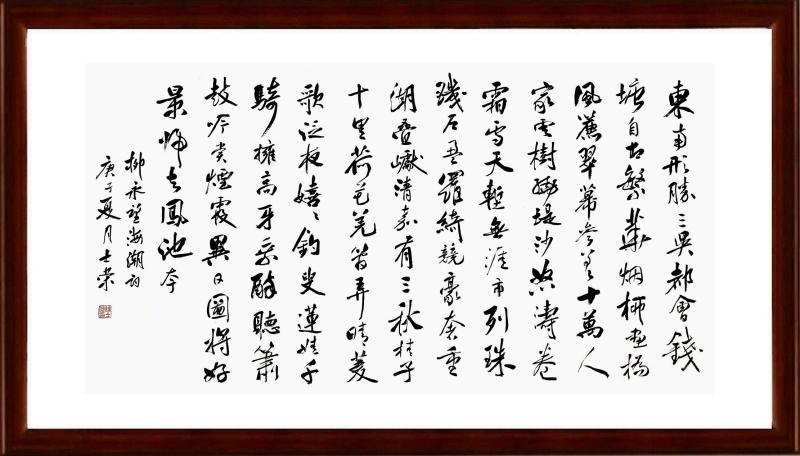 東南形勝三吳都會錢
塘自古繁華烟柳畫橋
風簾翠幕參差十萬人
家雲樹繞堤沙怒濤卷
霜雪天塹無涯市列珠
璣戶盈羅綺競豪奢重
湖疊巘清嘉有三秋桂子
十里荷花羌管弄晴菱
歌泛夜嬉〻釣叟蓮娃千
騎擁高牙乘醉聽簫
鼓吟賞煙霞異日圖將好
景歸去鳳池夸
柳永望海潮詞
庚子夏月士榮